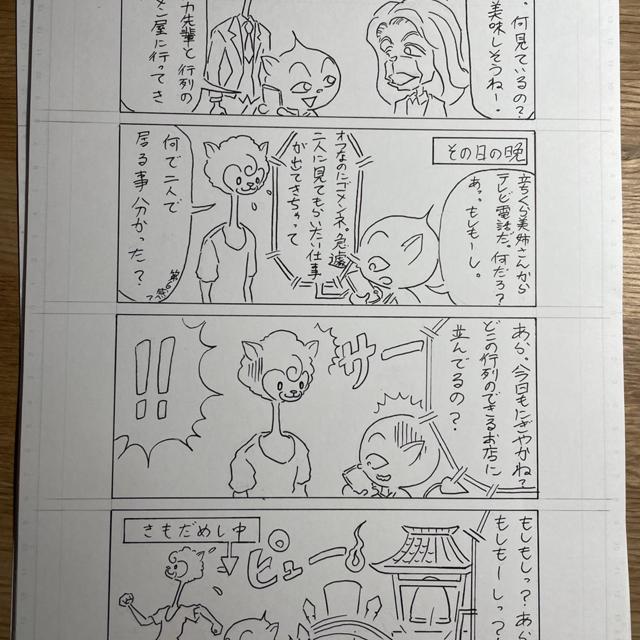 、何見ているの？
美味しそうねー。
カ先輩と行列の
メン屋に行ってき
その日の晩
立ちくら美姉さんから
テレビ電話だ。何だろ？
あ。。もしもーし。
オフなのにゴメンネ。急遽
二人に見てもらいたい仕事
が出てきちゃって
何で二人で
居る事分かった？
あら、今日もにぎやかね？
どこの行列のできるお店に
並んでるの？
サー
!!
もしもしっ？あら
もしもーしっ？
ピュー
さもだめし中